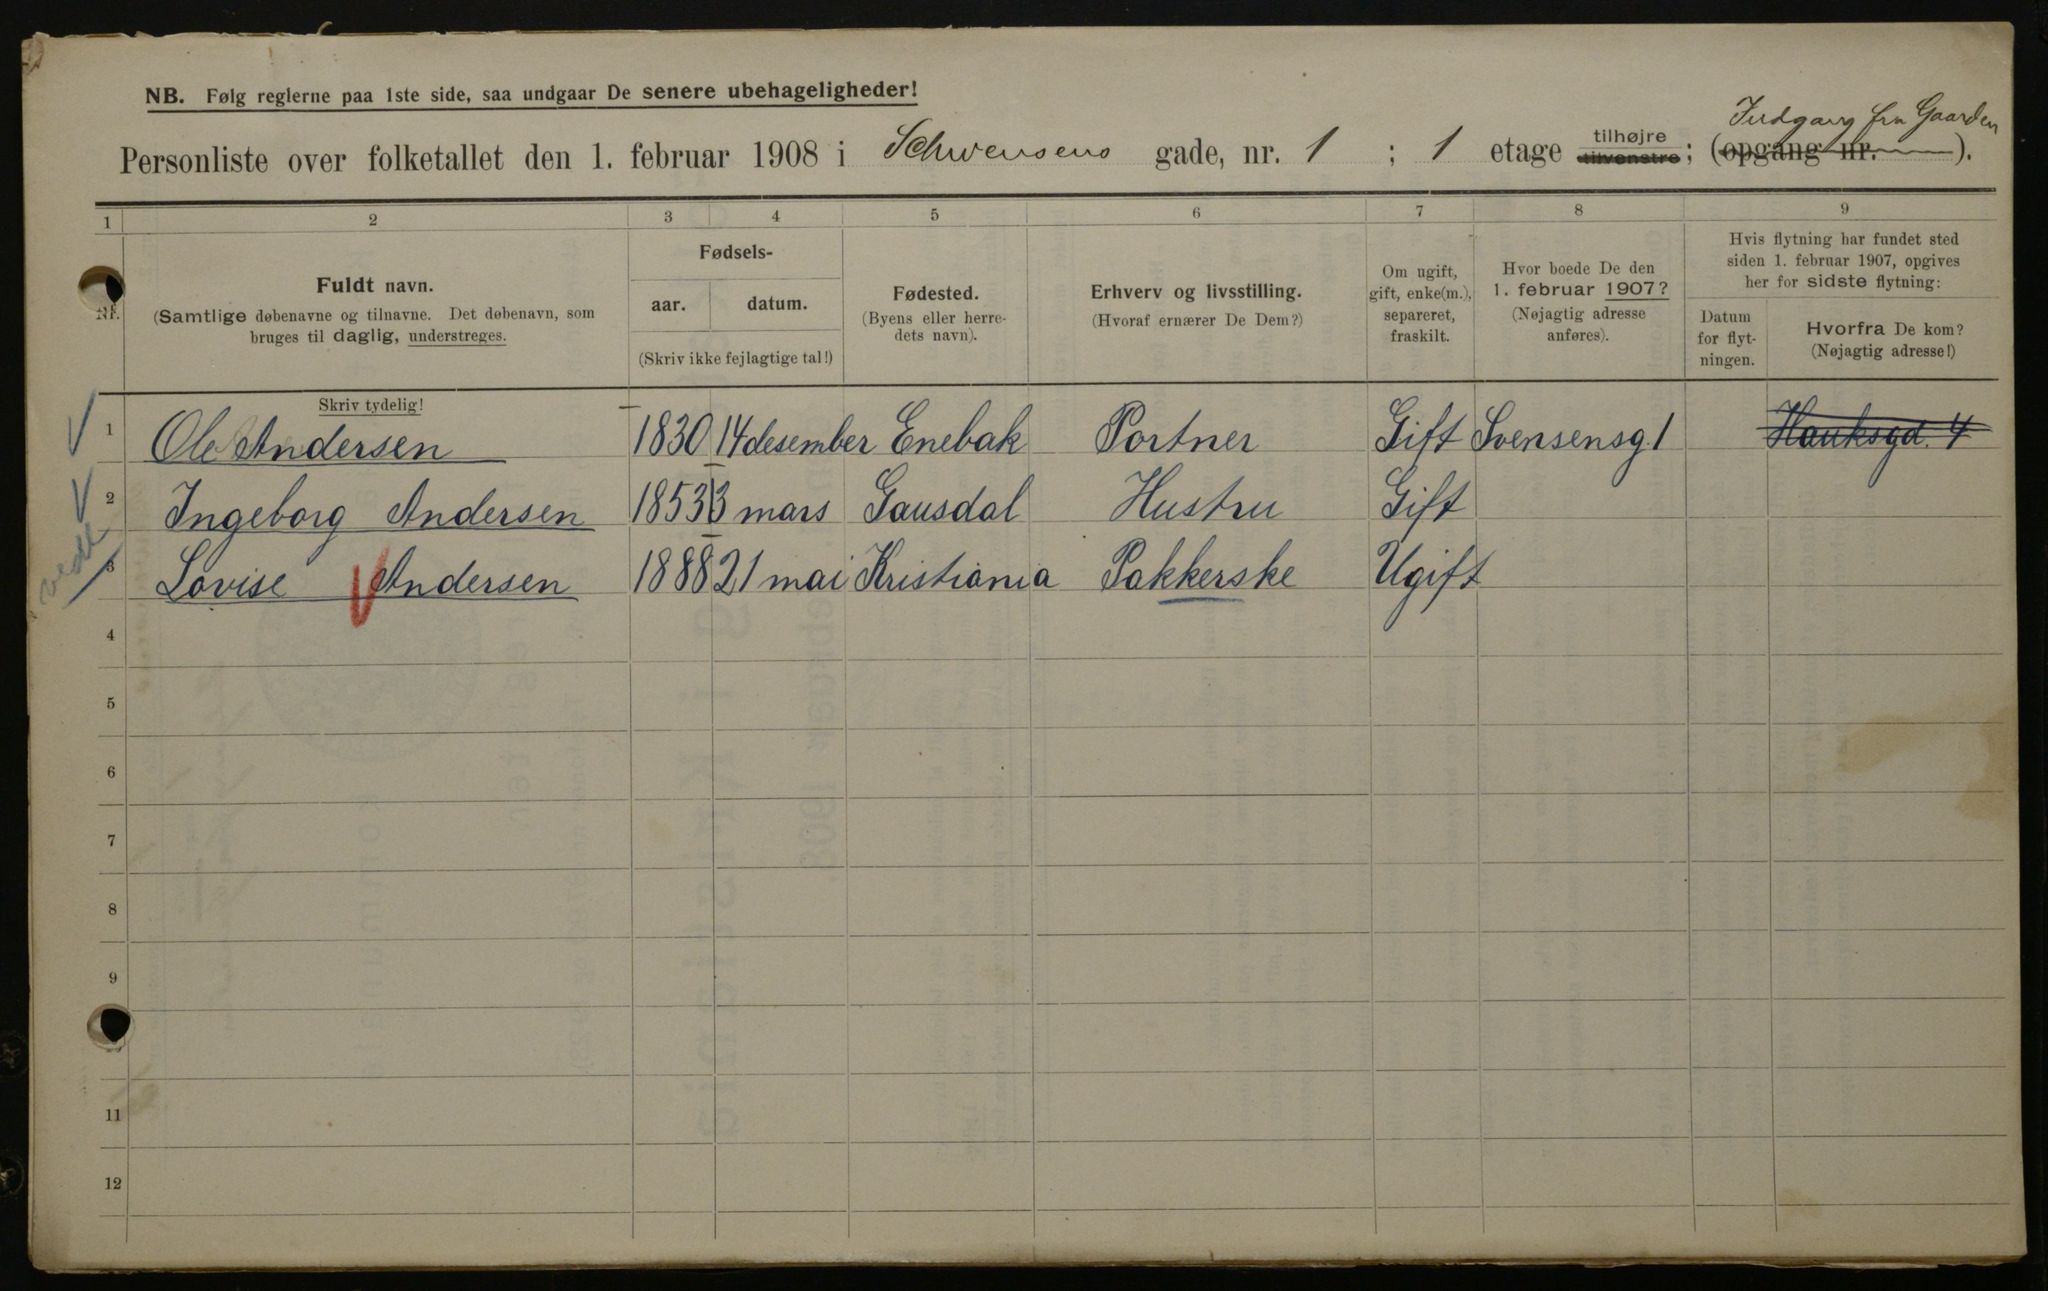 NB. Følg reglerne paa 1ste side, saa undgaar De senere ubehageligheder!
Indgang fra Gaarden
Personliste over folketallet den 1. februar 1908 i Schwensens gade, nr. 1 ; 1 etage tilhøjre tilvenstre; (opgang nr. ).
1 2 3 4 5 6 7 8 9
Nr.
Fuldt navn.
(Samtlige døbenavne og tilnavne. Det døbenavn, som
bruges til daglig, understreges.
Skriv tydelig!
Fødsels-
aar. datum.
(Skriv ikke fejlagtige tal!)
Fødested.
(Byens eller herre-
dets navn).
Erhverv og livsstilling.
(Hvoraf ernærer De Dem?)
Om ugift,
gift, enke(m.),
separeret,
fraskilt.
Hvor boede De den
1. februar 1907?
(Nøjagtig adresse
anføres).
Hvis flytning har fundet sted
siden 1. februar 1907, opgives
her for sidste flytning:
Datum
for flyt-
ningen.
Hvorfra De kom?
(Nøjagtig adresse!)
1 Ole Andersen 1830 14 desember Enebak Portner Gift Svensensg 1 Hauksgd. 4
2 Ingeborg Andersen 1853 3 mars Gausdal Hustru Gift
3 Lovise Andersen 1888 21 mai Kristiania Pakkerske Ugift
4
5
6
7
8
9
11
12